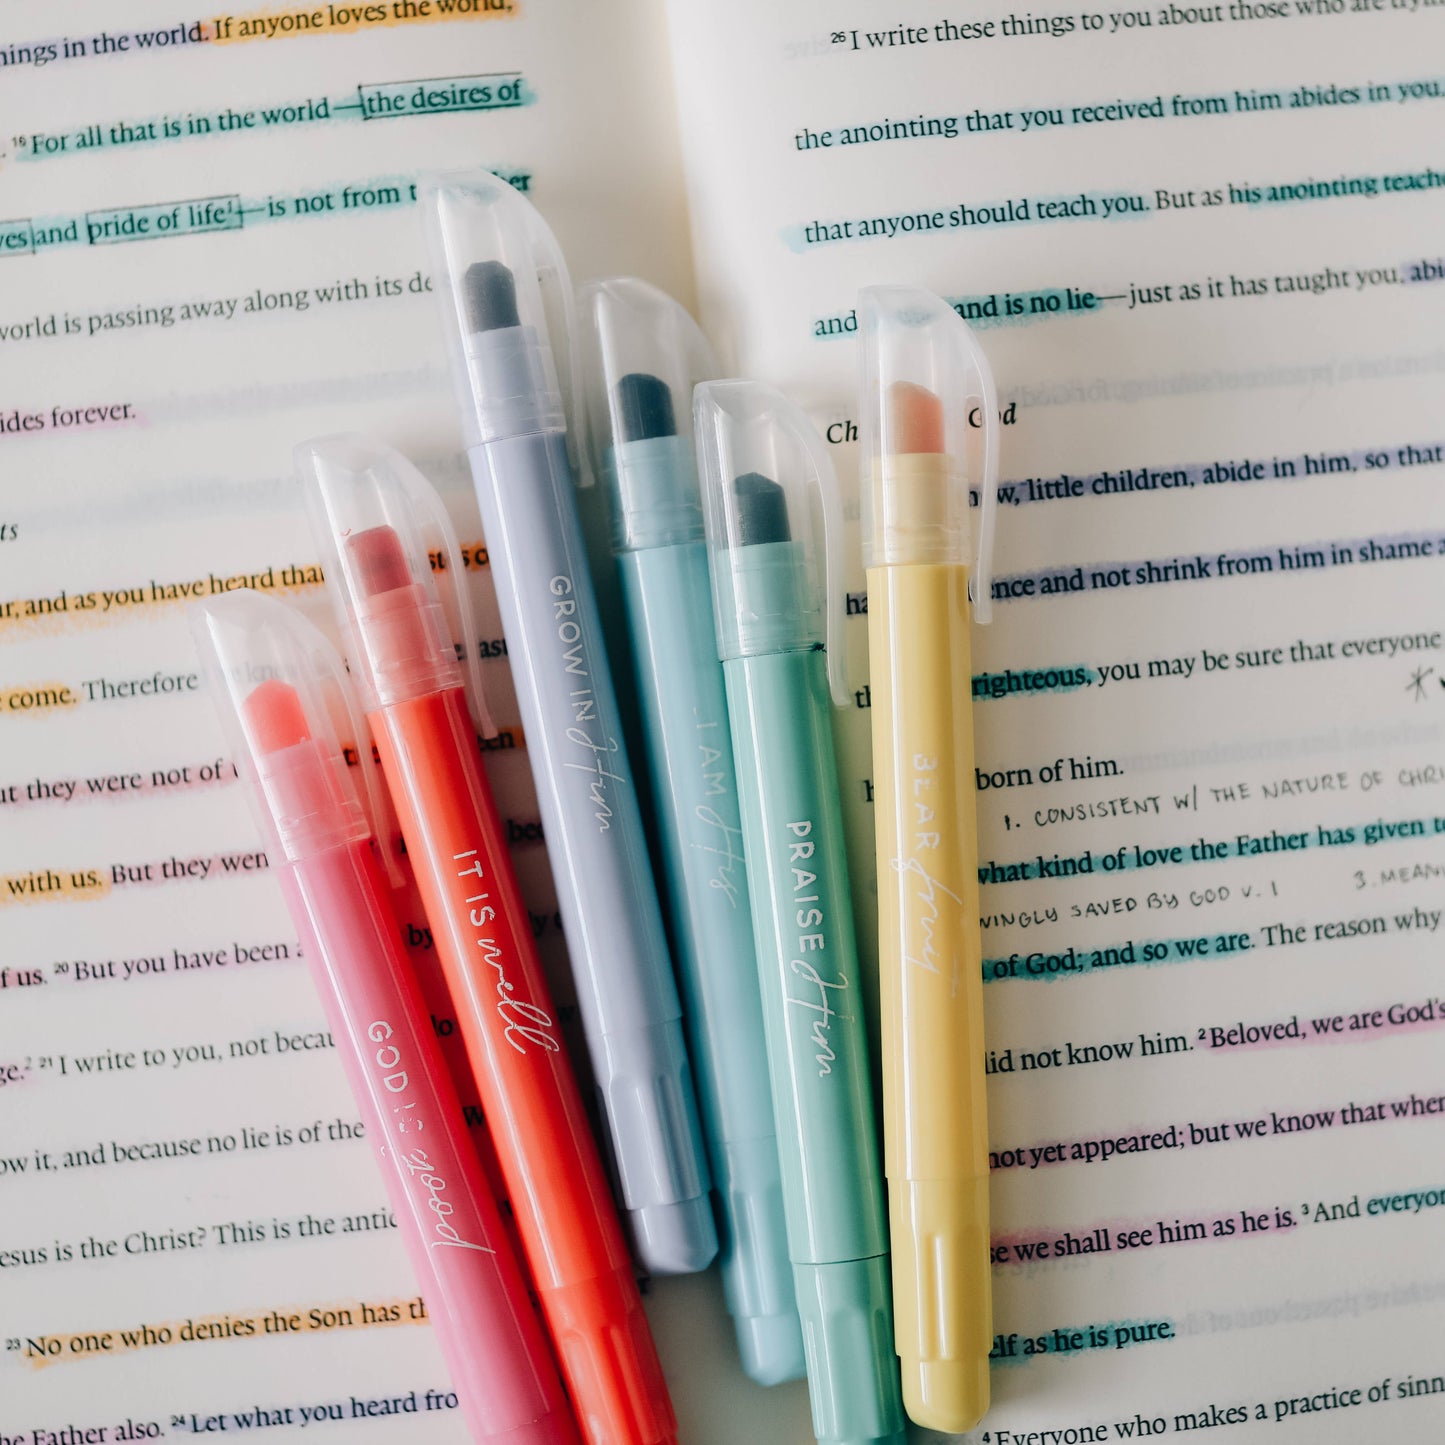 things in the world. If anyone loves the world,
16 For all that is in the world—the desires of
and pride of life1—is not from
world is passing away along with its
forever.
and as you have heard that
come. Therefore
but they were not of
with us. But they
of us. 20 But you have been
2 21 I write to you, not
it, and because no lie is of the
Jesus is the Christ? This is the
23 No one who denies the Son has
the Father also. 24 Let what you heard
GOD is good
IT IS well
GROW IN Him
I AM His
PRAISE Him
BEAR fruit
26 I write these things to you about those who are
the anointing that you received from him abides in you.
that anyone should teach you. But as his anointing
and and is no lie—just as it has taught you,
God
little children, abide in him, so that
and not shrink from him in shame
righteous, you may be sure that everyone
born of him.
1. CONSISTENT W/ THE NATURE OF
what kind of love the Father has given
SAVED BY GOD V. 1 3. 
of God; and so we are. The reason why
did not know him. 2 Beloved, we are God's
not yet appeared; but we know that when
we shall see him as he is. 3 And
as he is pure.
4 Everyone who makes a practice of